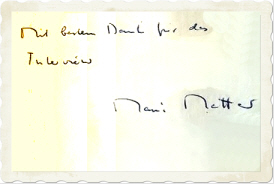 Mit bestem Dank für das
Interview
Mani Matter